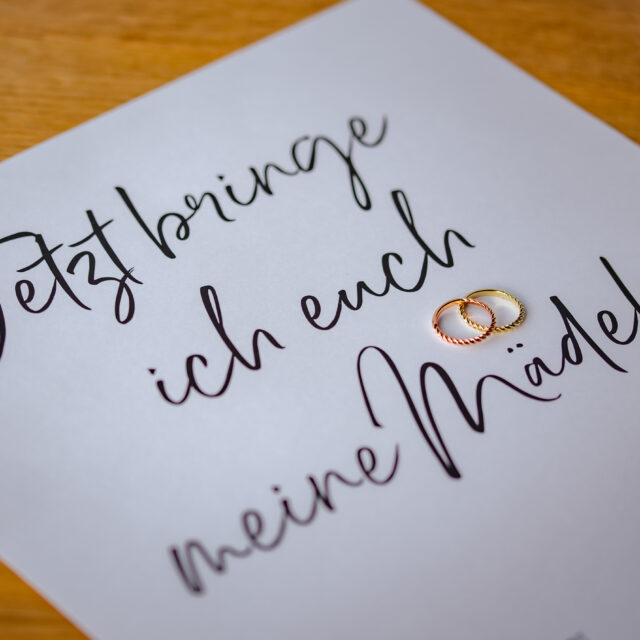 Jetzt bringe
ich euch
meine Mädel